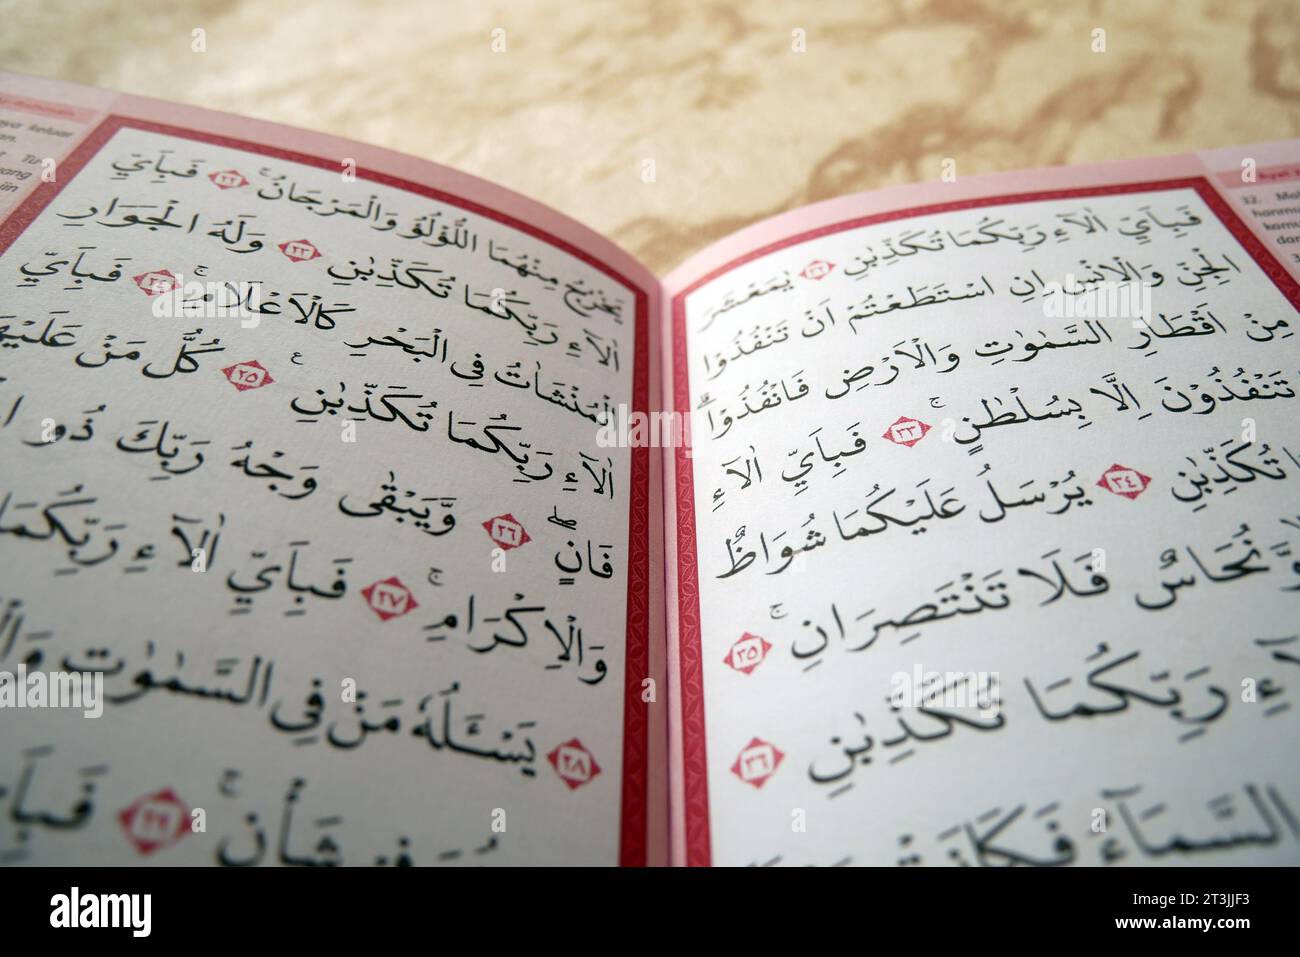 ya keluar
يَخْرُجُ مِنْهُمَا اللُّؤْلُؤُ وَالْمَرْجَانُۚ ٢٢ فَبِاَيِّ
اٰلَاۤءِ رَبِّكُمَا تُكَذِّبٰنِ ٢٣ وَلَهُ الْجَوَارِ
الْمُنْشَاٰتُ فِى الْبَحْرِ كَالْاَعْلَامِۚ ٢٤ فَبِاَيِّ
اٰلَاۤءِ رَبِّكُمَا تُكَذِّبٰنِۚ ٢٥ كُلُّ مَنْ عَلَيْهَا
فَانٍۖ ٢٦ وَّيَبْقٰى وَجْهُ رَبِّكَ ذُو
وَالْاِكْرَامِۚ ٢٧ فَبِاَيِّ اٰلَاۤءِ رَبِّكُمَا
٢٨ يَسْـَٔلُهٗ مَنْ فِى السَّمٰوٰتِ
شَأْنٍۚ ٢٩ فَبِاَيِّ
فَبِاَيِّ اٰلَاۤءِ رَبِّكُمَا تُكَذِّبٰنِ ٣٢ يٰمَعْشَرَ
الْجِنِّ وَالْاِنْسِ اِنِ اسْتَطَعْتُمْ اَنْ تَنْفُذُوْا
مِنْ اَقْطَارِ السَّمٰوٰتِ وَالْاَرْضِ فَانْفُذُوْاۗ
تَنْفُذُوْنَ اِلَّا بِسُلْطٰنٍۚ ٣٣ فَبِاَيِّ اٰلَاۤءِ
تُكَذِّبٰنِ ٣٤ يُرْسَلُ عَلَيْكُمَا شُوَاظٌ
وَّنُحَاسٌ فَلَا تَنْتَصِرَانِۚ ٣٥
رَبِّكُمَا تُكَذِّبٰنِ ٣٦
السَّمَاۤءُ فَكَانَتْ
32.
hanmu
kamu
alamy
Image ID: 2T3JJF3
www.alamy.com